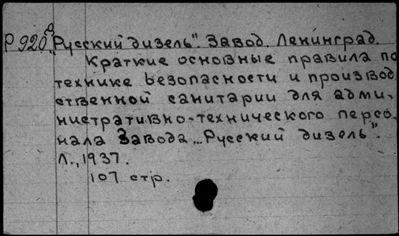 Р 920 "Русский дизель". Завод. Ленинград.
Краткие основные правила по
технике безопасности и производ
ственной санитарии для адми-
нистративно-технического персо-
нала Завода „Русский дизель".
Л., 1937.
107 стр.